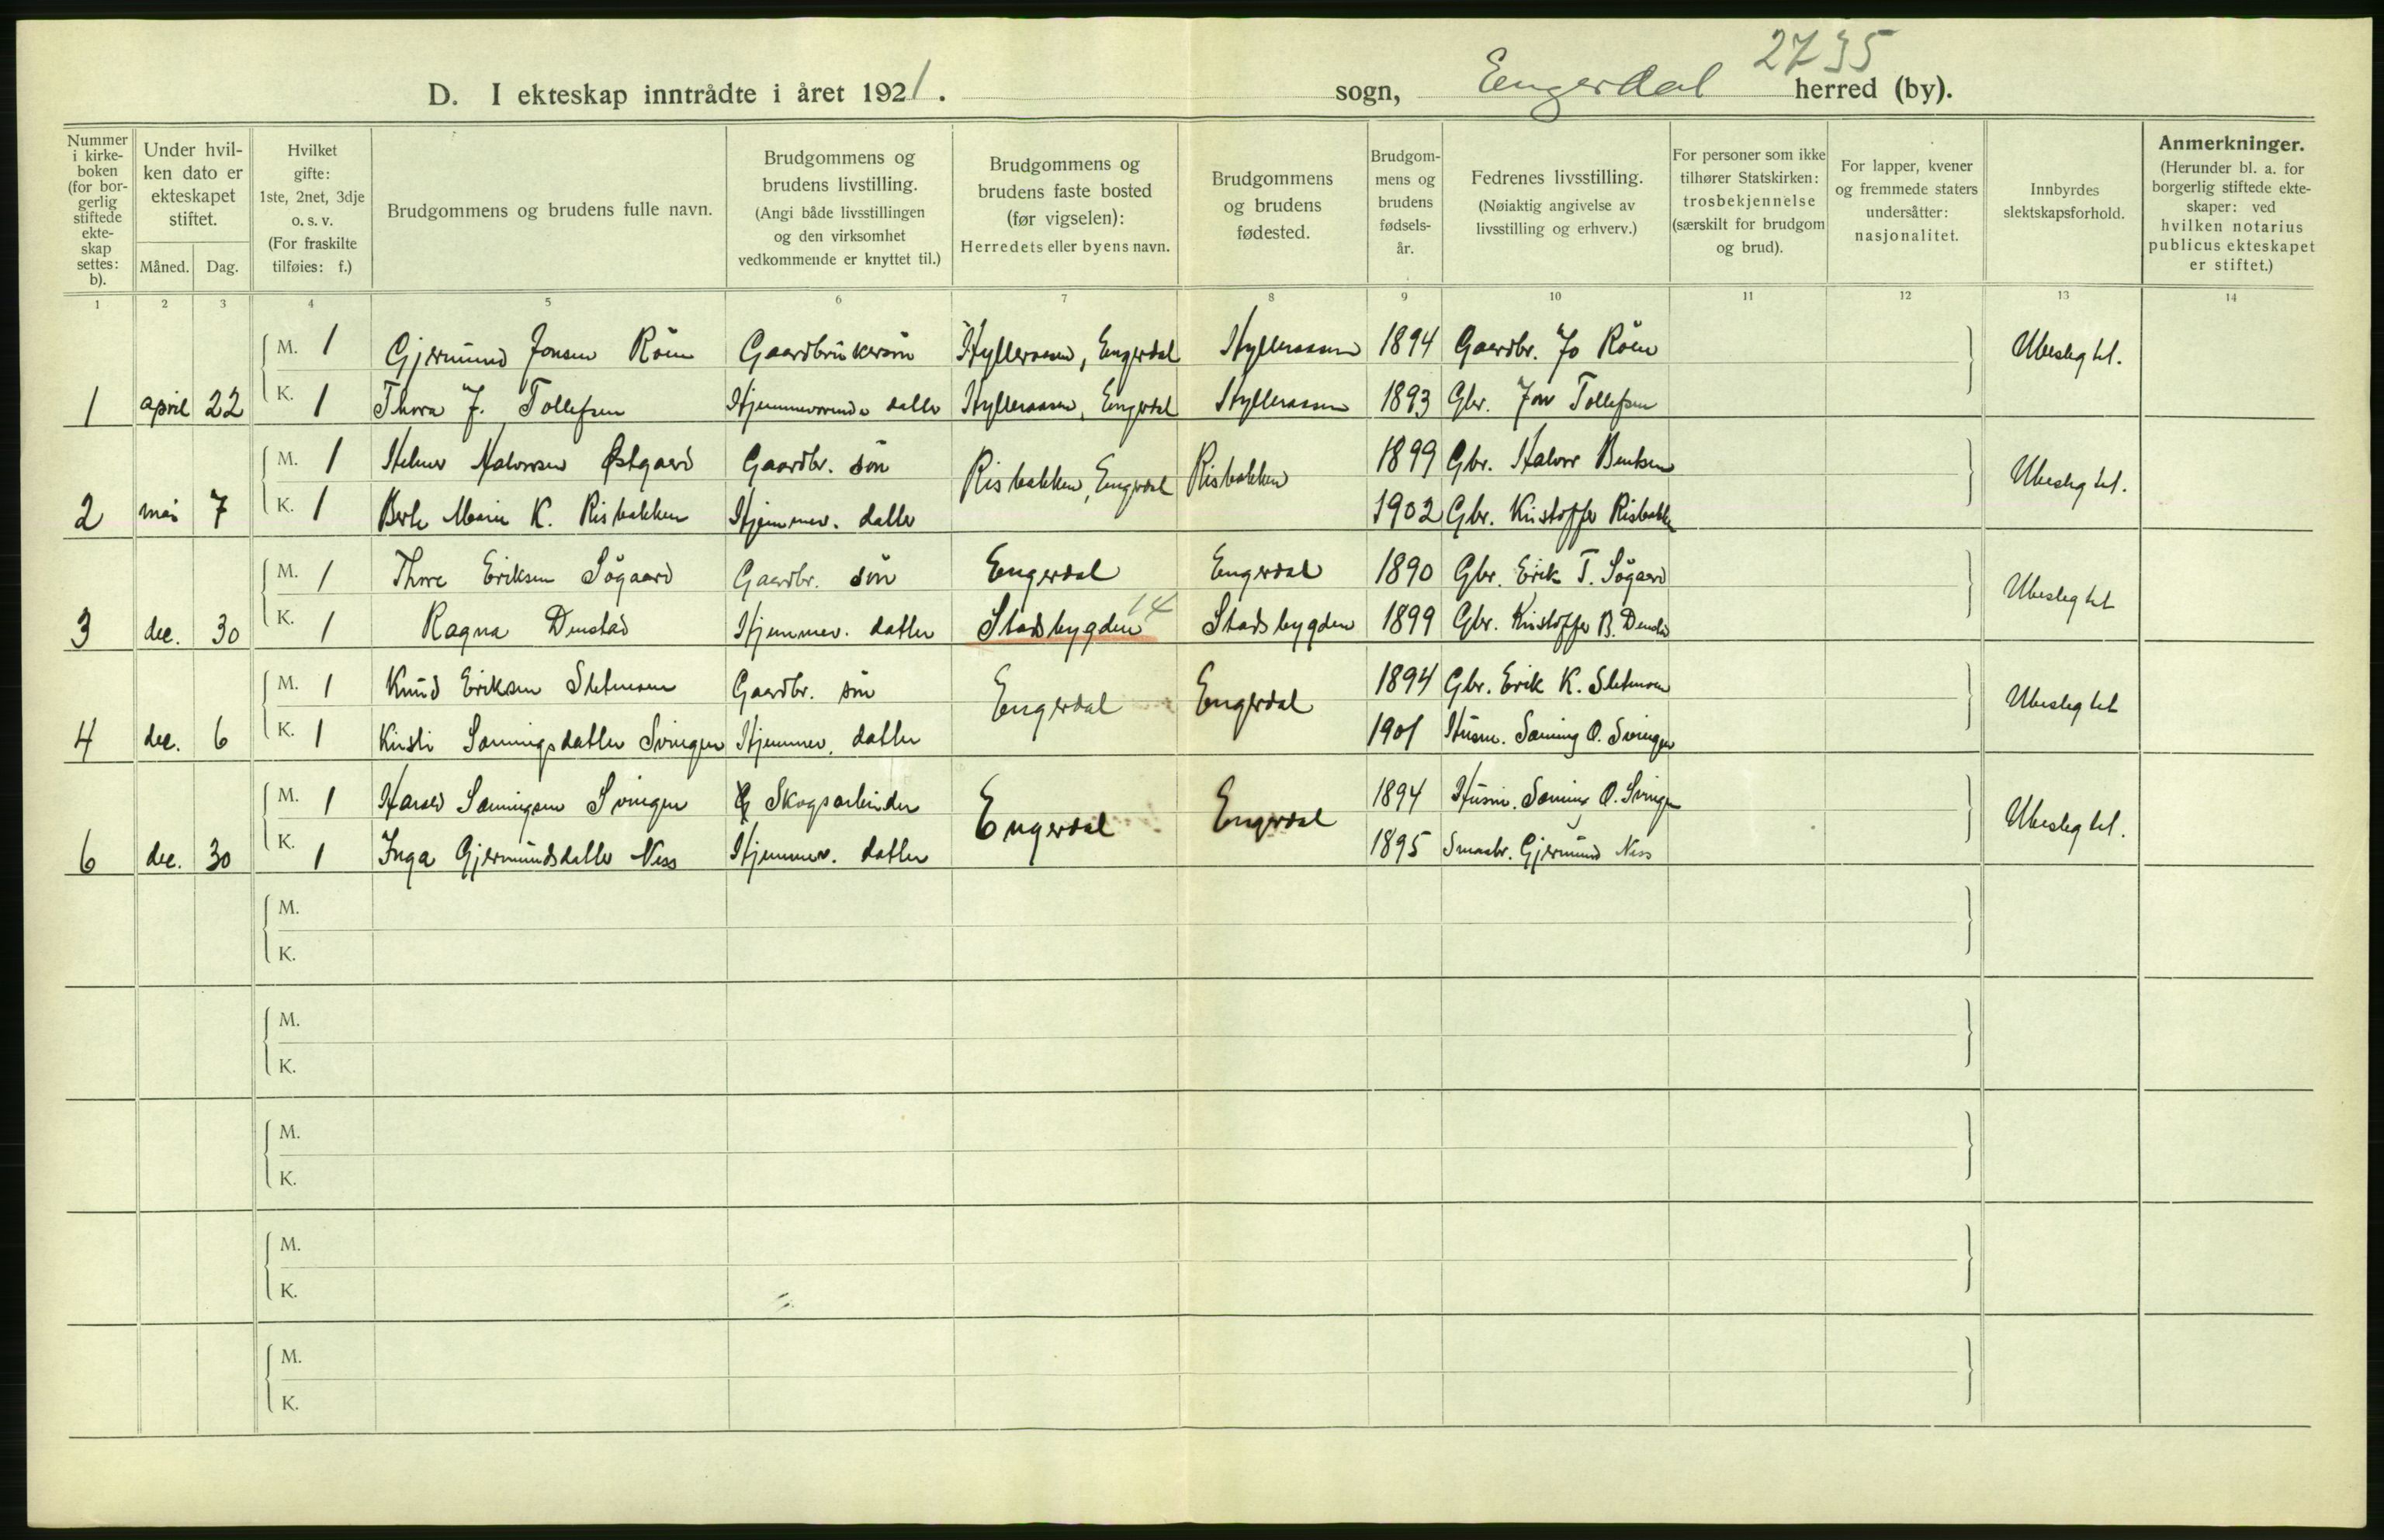 2735
D. I ekteskap inntrådte i året 1921. sogn, Engerdal herred (by).
Nummer i kirkeboken (for borgerlig stiftede ekteskap settes: b).
Under hvilken dato er ekteskapet stiftet.
Måned. Dag.
Hvilket gifte: 1ste, 2net, 3dje o. s. v. (For fraskilte tilføies: f.)
Brudgommens og brudens fulle navn.
Brudgommens og brudens livstilling. (Angi både livsstillingen og den virksomhet vedkommende er knyttet til.)
Brudgommens og brudens faste bosted (før vigselen): Herredets eller byens navn.
Brudgommens og brudens fødested.
Brudgommens og brudens fødselsår.
Fedrenes livsstilling. (Nøiaktig angivelse av livsstilling og erhverv.)
For personer som ikke tilhører Statskirken: trosbekjennelse (særskilt for brudgom og brud).
For lapper, kvener og fremmede staters undersåtter: nasjonalitet.
Innbyrdes slektskapsforhold.
Anmerkninger. (Herunder bl. a. for borgerlig stiftede ekteskaper: ved hvilken notarius publicus ekteskapet er stiftet.)
1 2 3 4 5 6 7 8 9 10 11 12 13 14
M. 1 Gjermund Jonsen Röen Gaardbrukersön Hylleraasen, Engerdal Hylleraasen 1894 Gaardbr. Jo Röen Ubeslegtet.
1 april 22 K. 1 Thora J. Tollefsen Hjemmeværende datter Hylleraasen, Engerdal Hylleraasen 1893 Gbr. Jon Tollefsen
M. 1 Helmer Halvorsen Østgaard Gaardbr. sön Risbakken, Engerdal Risbakken 1899 Gbr. Halvor Bentsen Ubeslegtet.
2 mai 7 K. 1 Berte Marie K. Risbakken Hjemmev. datter 1902 Gbr. Kristoffer Risbakken
M. 1 Thore Eriksen Sögaard Gaardbr. sön Engerdal Engerdal 1890 Gbr. Erik T. Sögaard Ubeslegtet
3 dec. 30 K. 1 Ragna Denstad Hjemmev. datter Stadsbygden 14 Stadsbygden 1899 Gbr. Kristoffer B. Denstad
M. 1 Knud Eriksen Sletmoen Gaardbr. sön Engerdal Engerdal 1894 Gbr. Erik K. Sletmoen Ubeslegtet
4 dec. 6 K. 1 Kirsti Sæmingsdatter Svingen Hjemmev. datter 1901 Husm. Sæming O. Svingen
M. 1 Harald Sæmingsen Svingen Skogsarbeider Engerdal Engerdal 1894 Husm. Sæming O. Svingen Ubeslegtet.
6 dec. 30 K. 1 Inga Gjermundsdatter Næss Hjemmev. datter 1895 Smaabr. Gjermund Næss
M.
K.
M.
K.
M.
K.
M.
K.
M.
K.